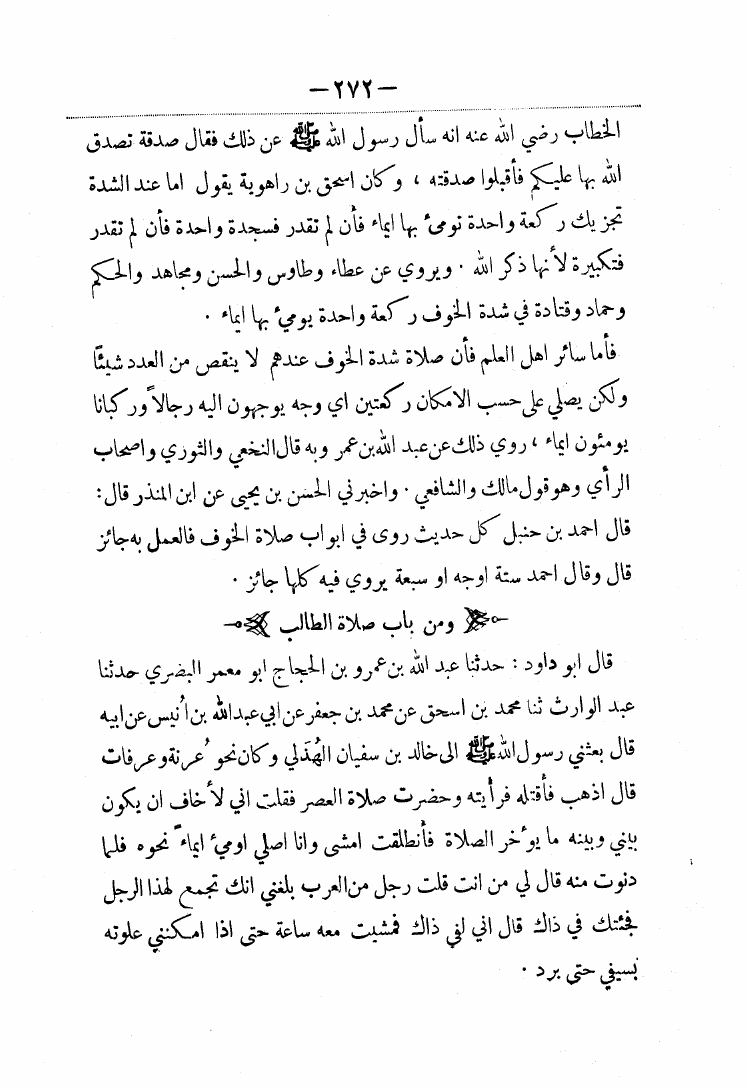 — ٢٧٢ —
الخطاب رضي الله عنه انه سأل رسول الله ﷺ عن ذلك فقال صدقة تصدق
الله بها عليكم فأقبلوا صدقته ، وكان اسحق بن راهوية يقول اما عند الشدة
تجزيك ركعة واحدة تومئ بها ايماء فأن لم تقدر فسجدة واحدة فأن لم تقدر
فتكبيرة لأنها ذكر الله . ويروي عن عطاء وطاوس والحسن ومجاهد والحكم
وحماد وقتادة في شدة الخوف ركعة واحدة يومئ بها ايماء .
فأما سائر اهل العلم فأن صلاة شدة الخوف عندهم لا ينقص من العدد شيئًا
ولكن يصلي على حسب الامكان ركعتين اي وجه يوجهون اليه رجالاً وركبانا
يومئون ايماء ، روي ذلك عن عبد الله بن عمر وبه قال النخعي والثوري واصحاب
الرأي وهو قول مالك والشافعي . واخبرني الحسن بن يحيى عن ابن المنذر قال :
قال احمد بن حنبل كل حديث روى في ابواب صلاة الخوف فالعمل به جائز
قال وقال احمد ستة اوجه او سبعة يروي فيه كلها جائز .
ومن باب صلاة الطالب
قال ابو داود : حدثنا عبد الله بن عمرو بن الحجاج ابو معمر البضري حدثنا
عبد الوارث ثنا محمد بن اسحق عن محمد بن جعفر عن ابي عبد الله بن أنيس عن ابيه
قال بعثني رسول الله ﷺ الى خالد بن سفيان الهُذَلي وكان نحو عُرنة وعرفات
قال اذهب فأقتله فرأيته وحضرت صلاة العصر فقلت اني لأخاف ان يكون
بيني وبينه ما يوأخر الصلاة فأنطلقت امشى وانا اصلي اومئ ايماءً نحوه فلما
دنوت منه قال لي من انت قلت رجل من العرب بلغني انك تجمع لهذا الرجل
فجئتك في ذاك قال اني لفي ذاك فمشيت معه ساعة حتى اذا امكنني علوته
بسيفي حتى برد .